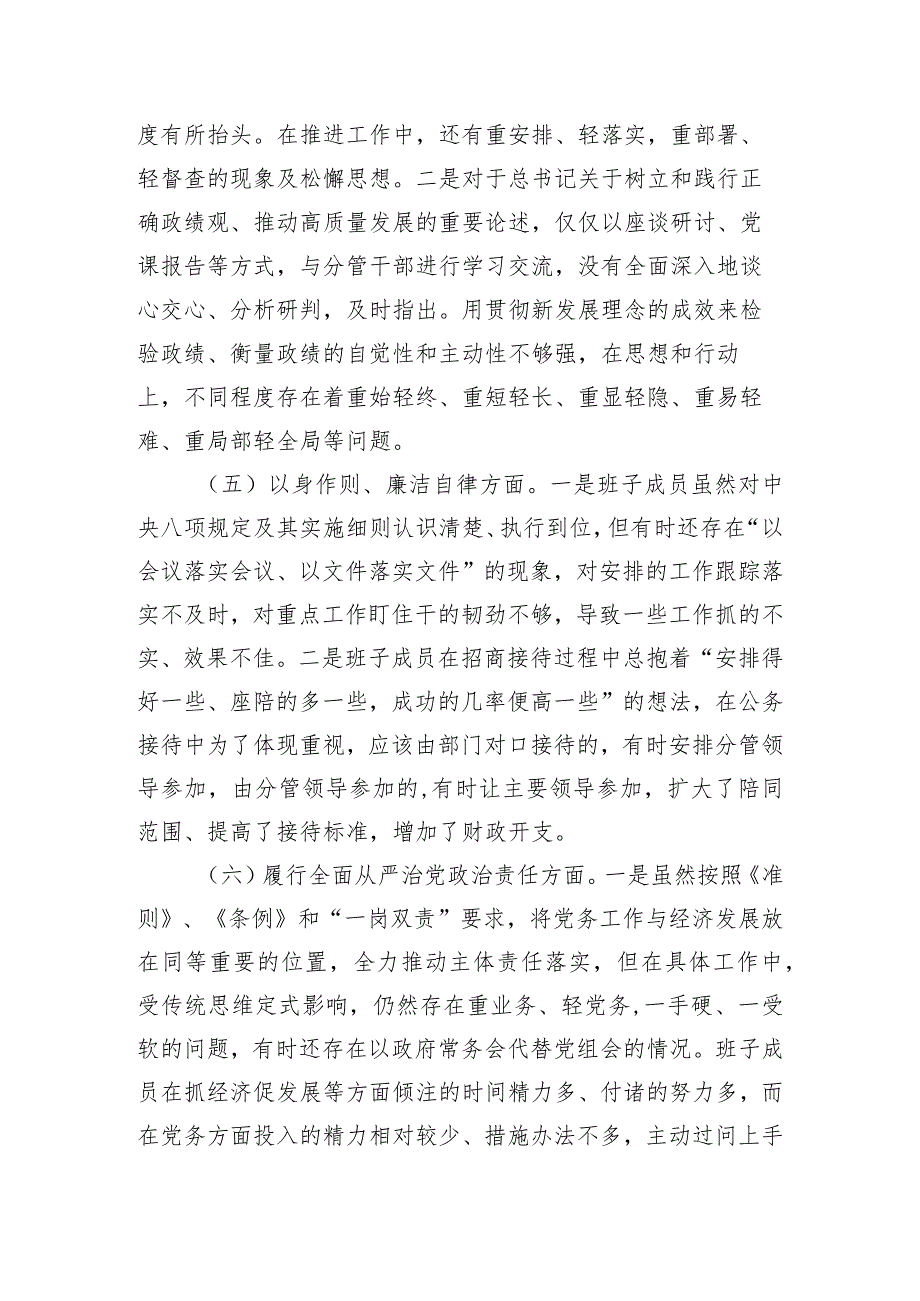 度有所抬头。在推进工作中，还有重安排、轻落实，重部署、
轻督查的现象及松懈思想。二是对于总书记关于树立和践行正
确政绩观、推动高质量发展的重要论述，仅仅以座谈研讨、党
课报告等方式，与分管干部进行学习交流，没有全面深入地谈
心交心、分析研判，及时指出。用贯彻新发展理念的成效来检
验政绩、衡量政绩的自觉性和主动性不够强，在思想和行动
上，不同程度存在着重始轻终、重短轻长、重显轻隐、重易轻
难、重局部轻全局等问题。
（五）以身作则、廉洁自律方面。一是班子成员虽然对中
央八项规定及其实施细则认识清楚、执行到位,但有时还存在“以
会议落实会议、以文件落实文件”的现象，对安排的工作跟踪落
实不及时，对重点工作盯住干的韧劲不够，导致一些工作抓的不
实、效果不佳。二是班子成员在招商接待过程中总抱着“安排得
好一些、座陪的多一些，成功的几率便高一些”的想法，在公务
接待中为了体现重视，应该由部门对口接待的，有时安排分管领
导参加，由分管领导参加的,有时让主要领导参加，扩大了陪同
范围、提高了接待标准，增加了财政开支。
（六）履行全面从严治党政治责任方面。一是虽然按照《准
则》、《条例》和“一岗双责”要求，将党务工作与经济发展放
在同等重要的位置，全力推动主体责任落实，但在具体工作中，
受传统思维定式影响，仍然存在重业务、轻党务,一手硬、一受
软的问题，有时还存在以政府常务会代替党组会的情况。班子成
员在抓经济促发展等方面倾注的时间精力多、付诸的努力多，而
在党务方面投入的精力相对较少、措施办法不多，主动过问上手